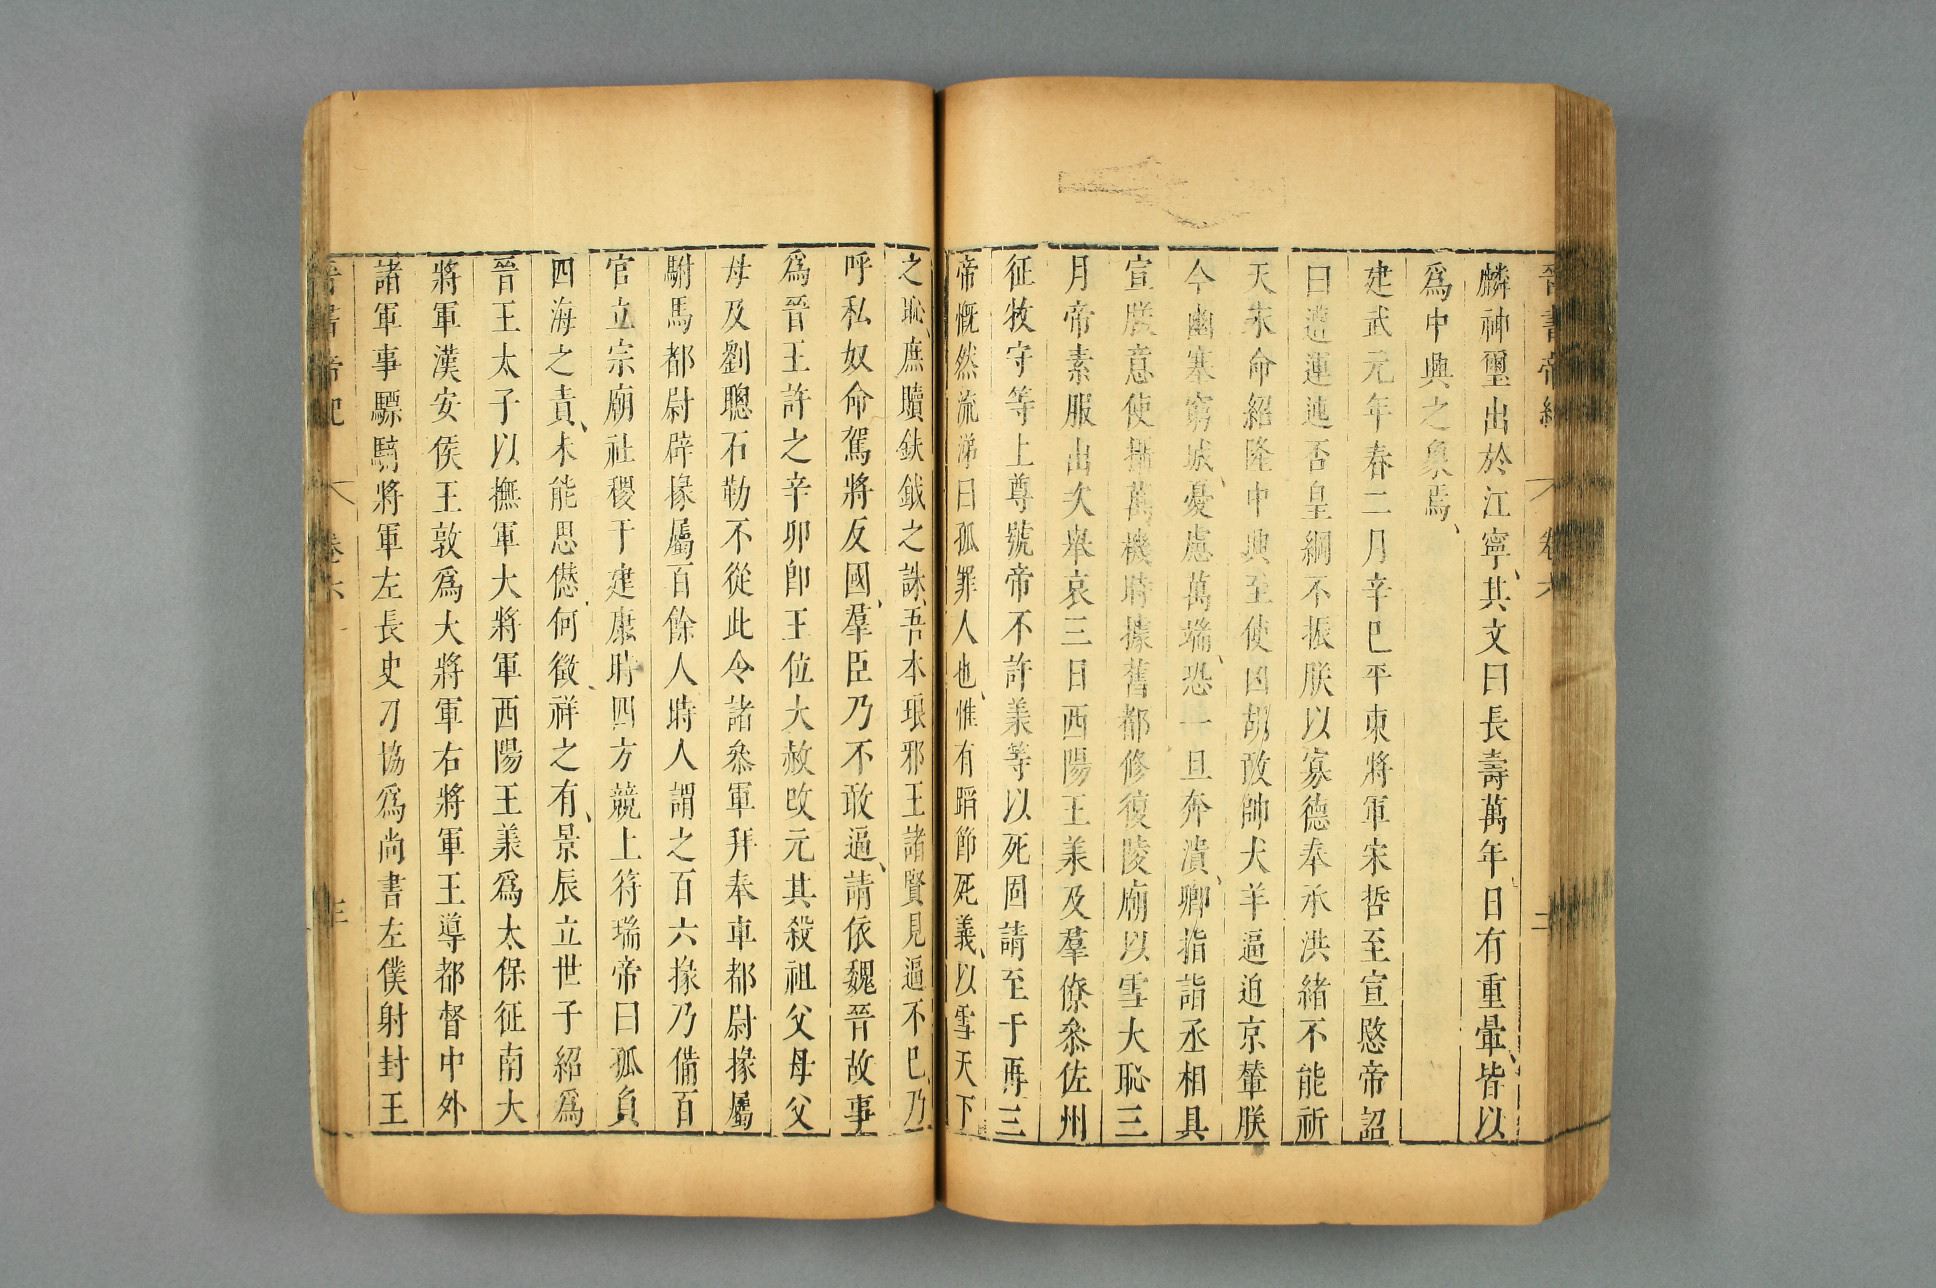 晉書帝紀 卷六 二
麟神璽出於江寧其文曰長壽萬年日有重暈皆以
爲中興之象焉
建武元年春二月辛巳平東將軍宋哲至宣愍帝詔
曰遭運迍否皇綱不振朕以寡德奉承洪緒不能祈
天永命紹隆中興至使凶胡敢帥犬羊逼迫京輦朕
今幽塞窮城憂慮萬端恐一旦奔潰卿指詣丞相具
宣朕意使攝萬機時據舊都修復陵廟以雪大恥三
月帝素服出次舉哀三日西陽王羕及羣僚叅佐州
征牧守等上尊號帝不許羕等以死固請至于再三
帝慨然流涕曰孤罪人也惟有蹈節死義以雪天下
之恥庶贖鈇鉞之誅吾本琅邪王諸賢見逼不已乃
呼私奴命駕將反國羣臣乃不敢逼請依魏晉故事
爲晉王許之辛卯卽王位大赦改元其殺祖父母父
母及劉聰石勒不從此令諸叅軍拜奉車都尉掾屬
駙馬都尉辟掾屬百餘人時人謂之百六掾乃備百
官立宗廟社稷于建康時四方競上符瑞帝曰孤負
四海之責未能思愆何徵祥之有景辰立世子紹爲
晉王太子以撫軍大將軍西陽王羕爲太保征南大
將軍漢安侯王敦爲大將軍右將軍王導都督中外
諸軍事驃騎將軍左長史刁協爲尚書左僕射封王
晉書帝紀 卷六 三